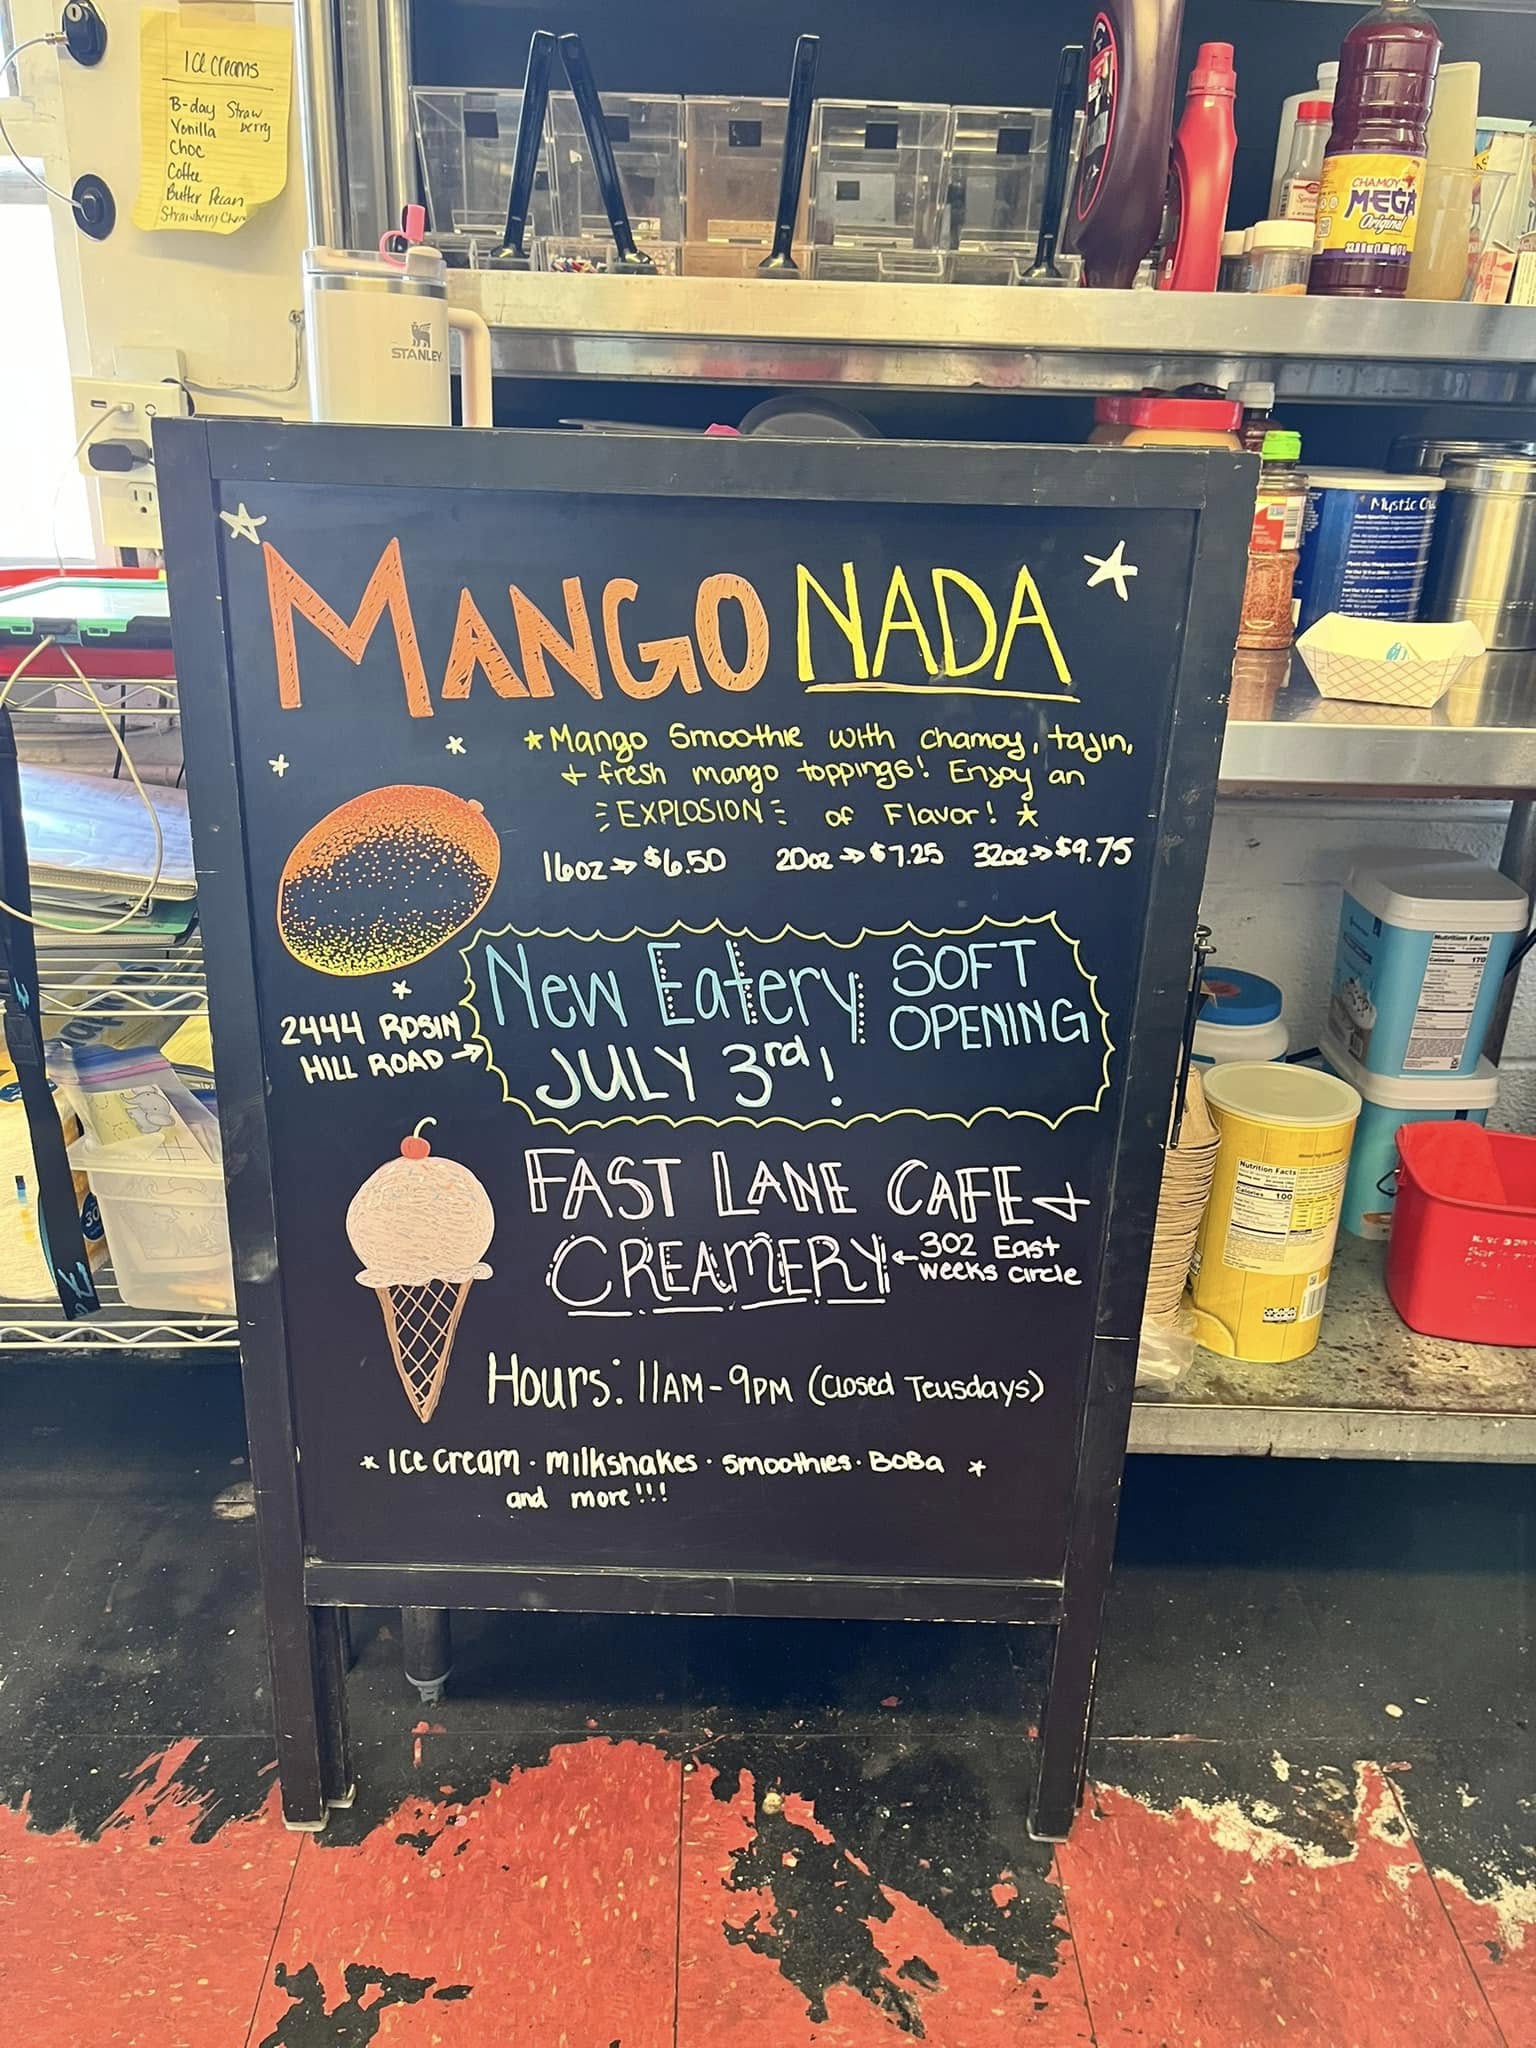 Ice creams
B-day Straw
Vanilla berry
Choc
Coffee
Butter Pecan
STANLEY
CHAMOY
MEGA
Original
Mystic
MANGONADA
Mango Smoothie with chamoy, tajin,
+ fresh mango toppings! Enjoy an
EXPLOSION of Flavor!
16oz → $6.50 20oz → $7.25 32oz → $9.75
New Eatery SOFT
OPENING
JULY 3rd!
2444 ROSIN
HILL ROAD →
FAST LANE CAFE +
CREAMERY ← 302 East
Weeks circle
Hours: 11AM-9PM (closed Teusdays)
* Ice cream · milkshakes · smoothies · BoBa *
and more!!!
Nutrition Facts
Calories 170
Nutrition Facts
Calories 100